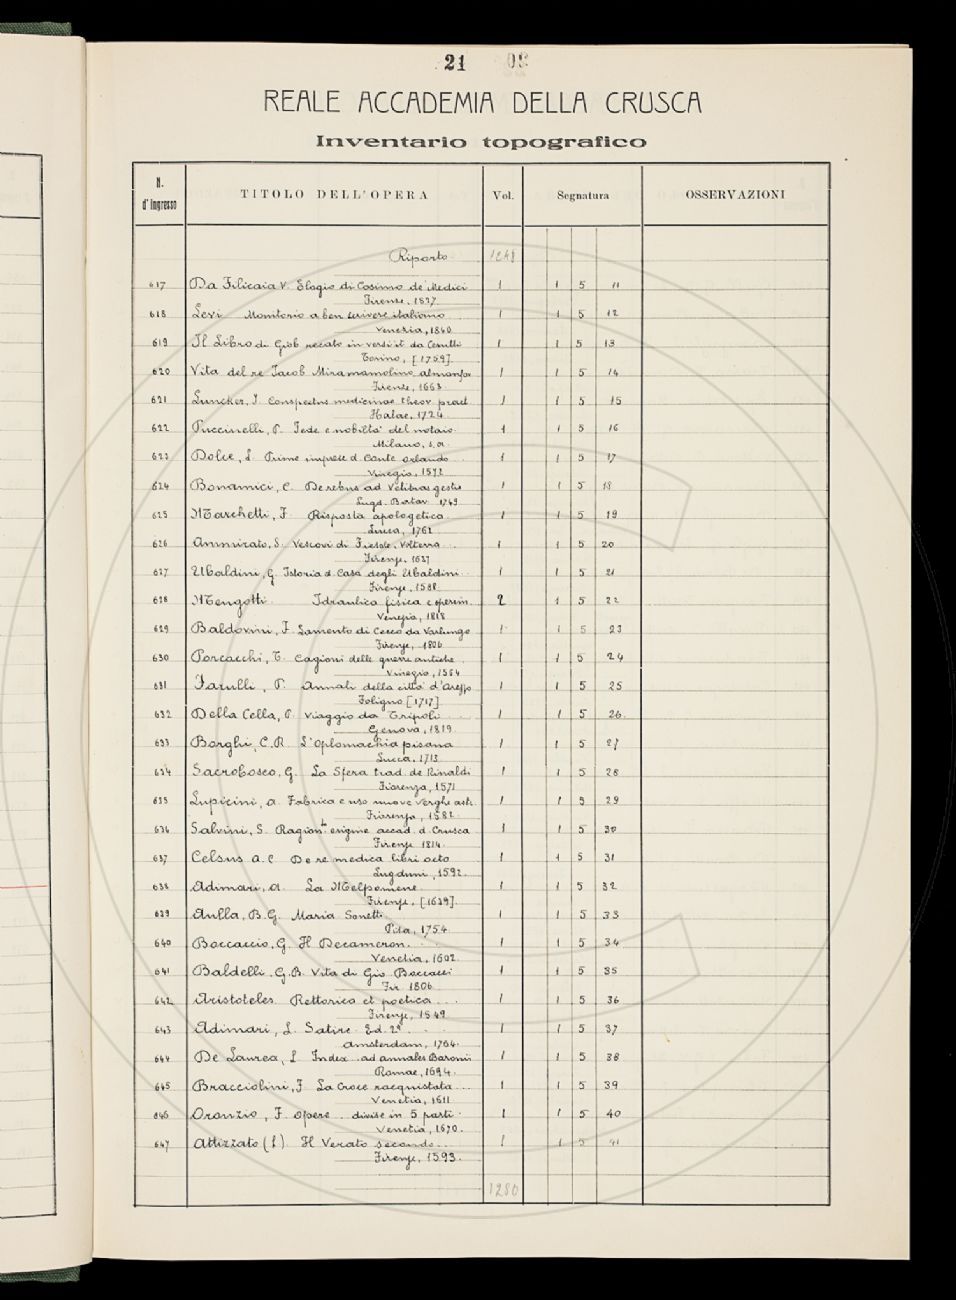 21
REALE ACCADEMIA DELLA CRUSCA
Inventario topografico
N. d'Ingresso TITOLO DELL'OPERA Vol. Segnatura OSSERVAZIONI
Riporto 1248
617 Da Filicaia V. Elogio di Cosimo de' Medici 1 1 5 11
Firenze, 1837
618 Levi Monitorio a ben scrivere italiano 1 1 5 12
Venezia, 1840
619 Il Libro di Giob recato in versi it da Cerutti 1 1 5 13
Torino, [1759]
620 Vita del re Jacob Miramamolino almanfor 1 1 5 14
Firenze, 1663
621 Juncker, J. Conspectus medicinae theor pract 1 1 5 15
Halae, 1724
622 Puccinelli, P. Fede e nobiltà del notaio 1 1 5 16
Milano, s.a.
623 Dolce, L. Prime imprese d. Conte Orlando 1 1 5 17
Vinegia, 1572
624 Bonamici, C. De rebus ad Velitras gestis 1 1 5 18
Lugd. Batav. 1749
625 Marchetti, F. Risposta apologetica 1 1 5 19
Lucca, 1762
626 Ammirato, S. Vescovi di Fiesole, Volterra ... 1 1 5 20
Firenze, 1637
627 Ubaldini, G. Istoria d. Casa degli Ubaldini 1 1 5 21
Firenze, 1588
628 Mengotti Idraulica fisica e sperim. 2 1 5 22
Venezia, 1818
629 Baldovini, F. Lamento di Cecco da Varlungo 1 1 5 23
Firenze, 1806
630 Porcacchi, T. Cagioni delle guerre antiche 1 1 5 24
Vinegia, 1564
631 Farulli, P. Annali della città d'Arezzo 1 1 5 25
Foligno [1717]
632 Della Cella, P. Viaggio da Tripoli ... 1 1 5 26.
Genova, 1819
633 Borghi, C.R. L'Oplomachia pisana 1 1 5 27
Lucca, 1713
634 Sacrobosco, G. La Sfera trad. de Rinaldi 1 1 5 28
Fiorenza, 1571
635 Lupicini, A. Fabrica e uso nuove verghe astr. 1 1 5 29
Fiorenza, 1582
636 Salvini, S. Ragionto origine accad. d. Crusca 1 1 5 30
Firenze 1814
637 Celsus A. C. De re medica libri octo 1 1 5 31
Lugduni, 1592
638 Adimari, A. La Melpomene 1 1 5 32
Firenze, [1639]
639 Aulla, B.G. Maria Sonetti 1 1 5 33
Pisa, 1754
640 Boccaccio, G. Il Decameron. 1 1 5 34
Venetia, 1602
641 Baldelli, G.B. Vita di Gio. Boccacci 1 1 5 35
Fir. 1806
642 Aristoteles Rettorica et poetica ... 1 1 5 36
Firenze, 1549
643 Adimari, L. Satire. Ed. 2a 1 1 5 37
Amsterdam, 1764
644 De Laurea, L. Index .. ad annales Baronii 1 1 5 38
Romae, 1694
645 Bracciolini, F. La Croce racquistata ... 1 1 5 39
Venetia, 1611
646 Oronzio, F. Opere .. divise in 5 parti 1 1 5 40
Venetia, 1670
647 Attizzato (L') Il Verato secondo ... 1 1 5 41
Firenze, 1593
1280